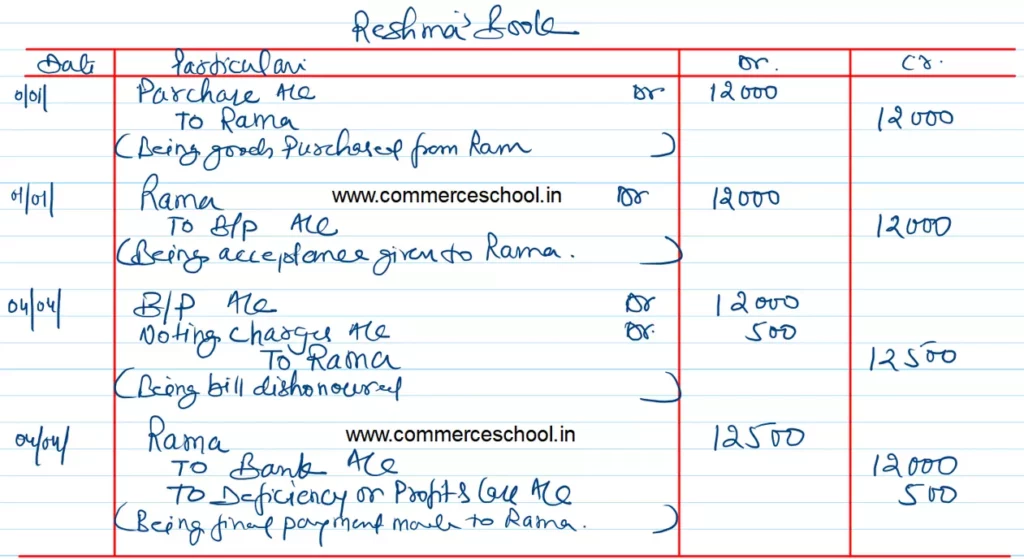 Reshma's Book
Date Particulars Dr. Cr.
01/01 Purchase A/c Dr 12000
To Rama 12000
(Being goods Purchased from Ram)
01/01 Rama www.commerceschool.in Dr 12000
To B/P A/c 12000
(Being acceptance given to Rama.)
04/04 B/P A/c Dr 12000
Noting Charges A/c Dr. 500
To Rama 12500
(Being bill dishonoured)
04/04 Rama www.commerceschool.in 12500
To Bank A/c 12000
To Deficiency or Profit & Loss A/c 500
(Being final payment made to Rama.)